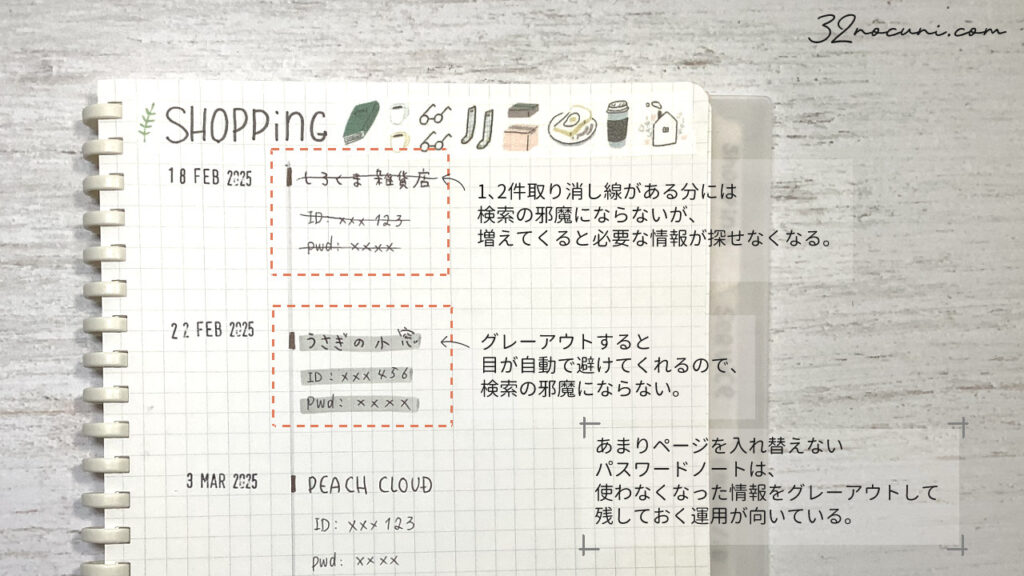 32nocuni.com
SHOPPING
18 FEB 2025
しろくま 雑貨店
ID: xxx 123
pwd: xxxx
1、2件取り消し線がある分には
検索の邪魔にならないが、
増えてくると必要な情報が探せなくなる。
22 FEB 2025
うさぎの小窓
ID: xxx 456
pwd: xxxx
グレーアウトすると
目が自動で避けてくれるので、
検索の邪魔にならない。
あまりページを入れ替えない
パスワードノートは、
使わなくなった情報をグレーアウトして
残しておく運用が向いている。
3 MAR 2025
PEACH CLOUD
ID: xxx 123
pwd: xxxx